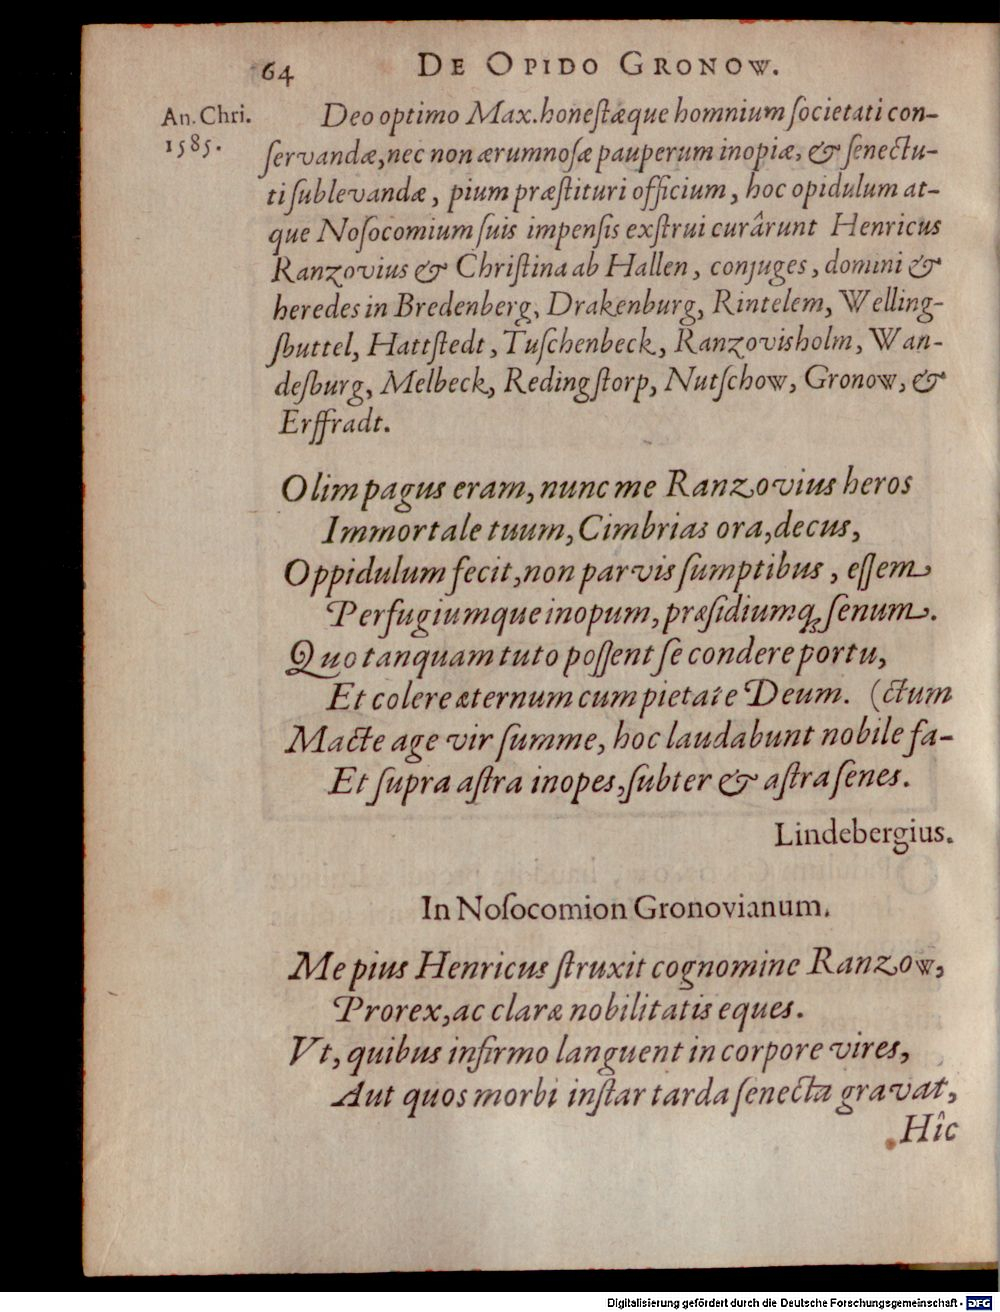 64 DE OPIDO GRONOW.
An. Chri.
1585.
Deo optimo Max. honeſtæque homnium ſocietati con-
ſervandæ, nec non ærumnoſæ pauperum inopiæ, & ſenectu-
ti ſublevandæ, pium præſtituri officium, hoc opidulum at-
que Noſocomium ſuis impenſis exſtrui curârunt Henricus
Ranzovius & Chriſtina ab Hallen, conjuges, domini &
heredes in Bredenberg, Drakenburg, Rintelem, Welling-
ſbuttel, Hattſtedt, Tuſchenbeck, Ranzovisholm, Wan-
deſburg, Melbeck, Redingſtorp, Nutſchow, Gronow, &
Erffradt.
Olim pagus eram, nunc me Ranzovius heros
Immortale tuum, Cimbrias ora, decus,
Oppidulum fecit, non parvis ſumptibus, eſſem
Perfugiumque inopum, præſidiumq; ſenum.
Quo tanquam tuto poſſent ſe condere portu,
Et colere æternum cum pietate Deum. (ctum
Macte age vir ſumme, hoc laudabunt nobile fa-
Et ſupra aſtra inopes, ſubter & aſtra ſenes.
Lindebergius.
In Noſocomion Gronovianum.
Me pius Henricus ſtruxit cognomine Ranzow,
Prorex, ac claræ nobilitatis eques.
Vt, quibus infirmo languent in corpore vires,
Aut quos morbi inſtar tarda ſenecta gravat,
Hîc
Digitalisierung gefördert durch die Deutsche Forschungsgemeinschaft - DFG